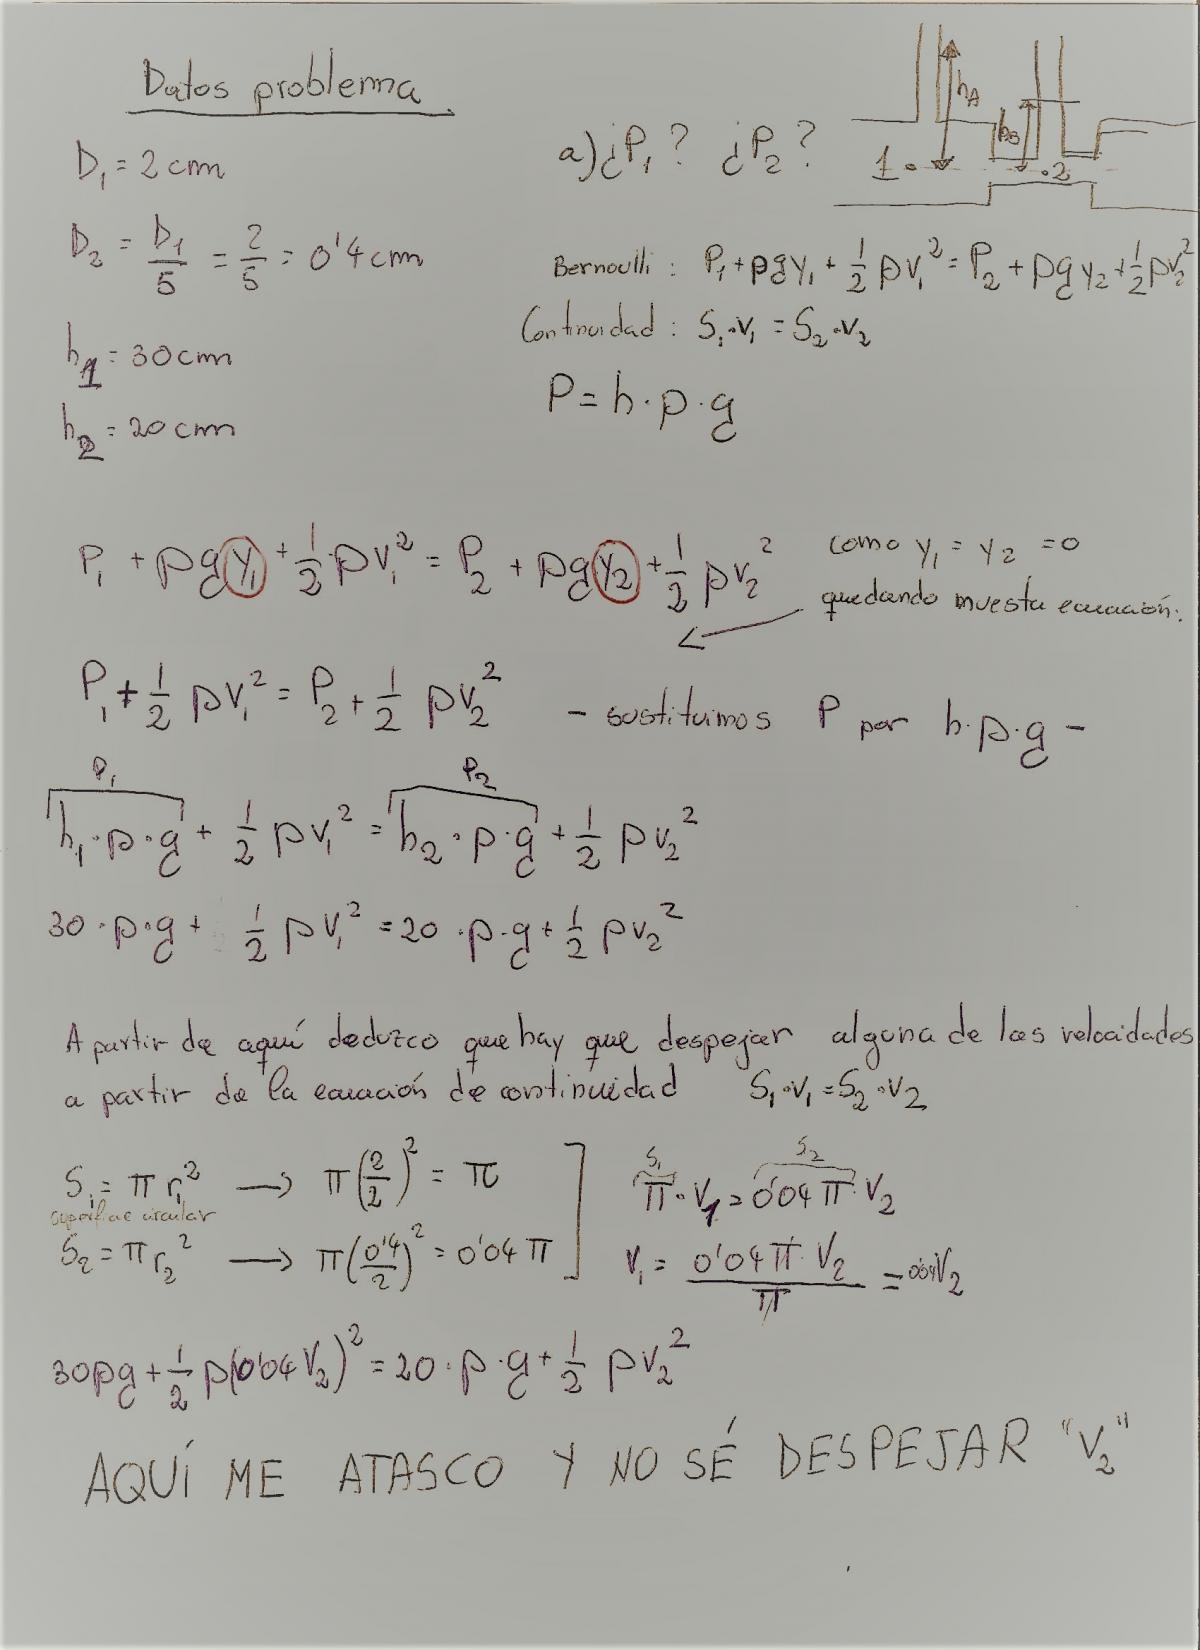 Datos problema
D₁ = 2 cm
D₂ = D₁/5 = 2/5 = 0'4 cm
h₁ = 30 cm
h₂ = 20 cm
a) ¿P₁? ¿P₂?
hA
hB
1
2
Bernoulli : P₁ + ρgy₁ + 1/2 ρv₁² = P₂ + ρgy₂ + 1/2 ρv₂²
Continuidad : S₁·v₁ = S₂·v₂
P = h·ρ·g
P₁ + ρgy₁ + 1/2 ρv₁² = P₂ + ρgy₂ + 1/2 ρv₂²
como y₁ = y₂ = 0
quedando nuesta ecuación:
P₁ + 1/2 ρv₁² = P₂ + 1/2 ρv₂² - sustituimos P por h·ρ·g -
P₁ P₂
h₁·ρ·g + 1/2 ρv₁² = h₂·ρ·g + 1/2 ρv₂²
30·ρ·g + 1/2 ρv₁² = 20·ρ·g + 1/2 ρv₂²
A partir de aquí deduzco que hay que despejar alguna de las velocidades
a partir de la ecuación de continuidad S₁·v₁ = S₂·v₂
S₁ = π r₁² → π(2/2)² = π
superficie circular
S₂ = π r₂² → π(0'4/2)² = 0'04 π
S₁ S₂
π·v₁ = 0'04 π·v₂
v₁ = 0'04 π·v₂/π = 0'04v₂
30ρg + 1/2 ρ(0'04 v₂)² = 20·ρ·g + 1/2 ρv₂²
AQUÍ ME ATASCO Y NO SÉ DESPEJAR "V₂"